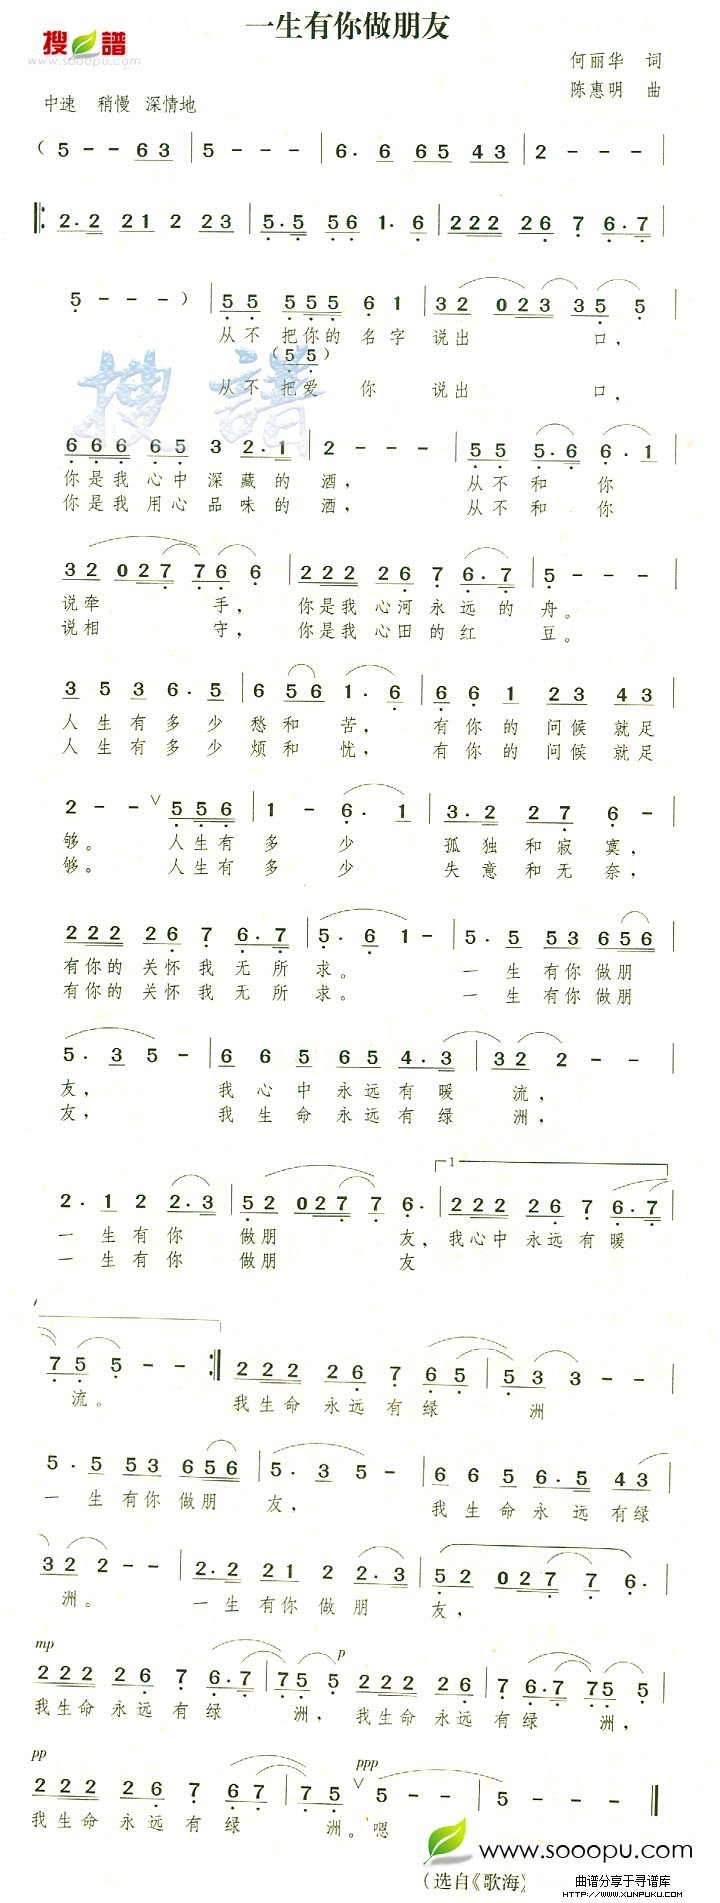 一生有你做朋友
搜谱
www.sooopu.com
何丽华 词
陈惠明 曲
中速 稍慢 深情地
( 5 - - 6 3 | 5 - - - | 6. 6 6 5 4 3 | 2 - - - |
2. 2 2 1 2 2 3 | 5. 5 5 6 1. 6 | 2 2 2 2 6 7 6. 7 |
5 - - - ) | 5 5 5 5 5 6 1 | 3 2 0 2 3 3 5 5 |
从不把你的名字说出口，
( 5 5 )
从不把爱你说出口，
搜谱
6 6 6 6 5 3 2. 1 | 2 - - - | 5 5 5. 6 6. 1 |
你是我心中深藏的酒， 从不和你
你是我用心品味的酒， 从不和你
3 2 0 2 7 7 6 6 | 2 2 2 2 6 7 6. 7 | 5 - - - |
说牵手， 你是我心河永远的舟。
说相守， 你是我心田的红豆。
3 5 3 6. 5 | 6 5 6 1. 6 | 6 6 1 2 3 4 3 |
人生有多少愁和苦， 有你的问候就足
人生有多少烦和忧， 有你的问候就足
2 - - ∨ 5 5 6 | 1 - 6. 1 | 3. 2 2 7 6 - |
够。 人生有多少孤独和寂寞，
够。 人生有多少失意和无奈，
2 2 2 2 6 7 6. 7 | 5. 6 1 - | 5. 5 5 3 6 5 6 |
有你的关怀我无所求。 一生有你做朋
有你的关怀我无所求。 一生有你做朋
5. 3 5 - | 6 6 5 6 5 4. 3 | 3 2 2 - - |
友， 我心中永远有暖流，
友， 我生命永远有绿洲，
1
2. 1 2 2. 3 | 5 2 0 2 7 7 6. | 2 2 2 2 6 7 6. 7 |
一生有你做朋友，我心中永远有暖
一生有你做朋友
7 5 5 - - :| 2 2 2 2 6 7 6 5 | 5 3 3 - - |
流。 我生命永远有绿洲
5. 5 5 3 6 5 6 | 5. 3 5 - | 6 6 5 6. 5 4 3 |
一生有你做朋友， 我生命永远有绿
3 2 2 - - | 2. 2 2 1 2 2. 3 | 5 2 0 2 7 7 6. |
洲。 一生有你做朋友，
mp p
2 2 2 2 6 7 6. 7 | 7 5 5 2 2 2 2 6 | 7 6. 7 7 5 5 |
我生命永远有绿洲，我生命永远有绿洲，
pp ppp
2 2 2 2 6 7 6 7 | 7 5 ∨ 5 - - | 5 - - - ‖
我生命永远有绿洲。嗯
www.sooopu.com
（选自《歌海》
曲谱分享于寻谱库
HTTP://WWW.XUNPUKU.COM